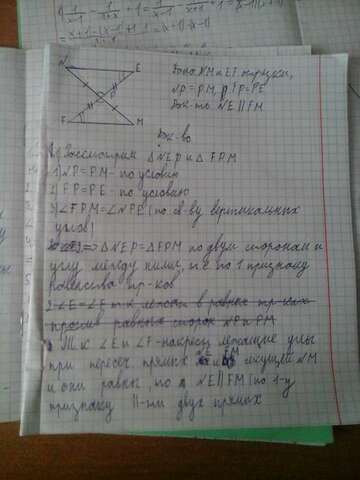 N
E
P
F
M
Дано NM и EF отрезки,
NP = PM, FP = PE
Док-ть NE || FM
Док-во
Рассмотрим △NEP и △FPM
1) NP = PM - по условию
2) FP = PE - по условию
3) ∠FPM = ∠NPE (по св-ву вертикальных
углов)
⇒ △NEP = △FPM по двум сторонам и
углу между ними, по 1 признаку
равенства тр-ков
2 ∠E = ∠F т.к лежат в равных тр-ках
против равных сторон NP и PM
Т.К ∠E и ∠F - накрест лежащие углы
при пересеч прямых NE и FM секущей NM
и они равны, то NE || FM (по 1-у
признаку ||-ти двух прямых